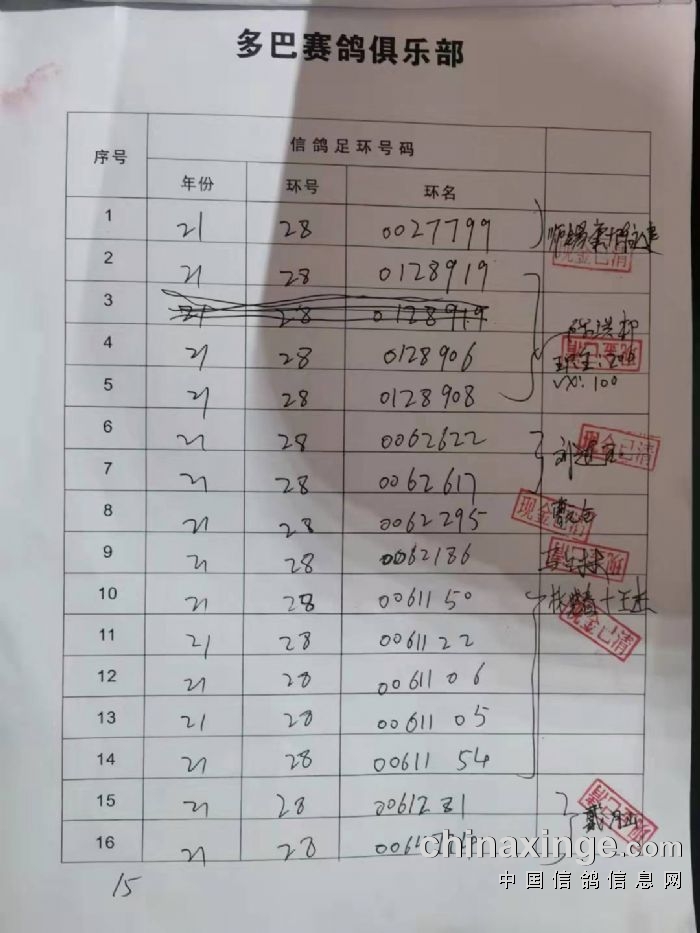 多巴赛鸽俱乐部
序号 信鸽足环号码
年份 环号 环名
1 21 28 0027799
现金已清
2 21 28 0128919
3 21 28 0128919
4 21 28 0128906
现金:200
5 21 28 0128908
vx:100
6 21 28 0062622
现金已清
7 21 28 0062617
8 21 28 0062295 现金已清
9 21 28 0062186
10 21 28 0061150
现金已清
11 21 28 0061122
12 21 28 0061106
13 21 28 0061105
14 21 28 0061154
15 21 28 0061281
16 21 28
15
chinaxinge.com
中国信鸽信息网